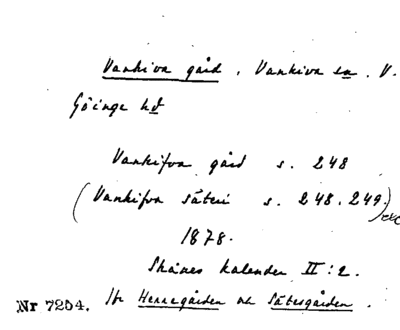 Vankiva gård, Vankiva sn, V.
Göinge hd
Vankifva gård s. 248
(Vankifva säteri s. 248. 249.)
1878.
Skånes kalender II:2.
Nr 7254. Herregården och Sätesgården.